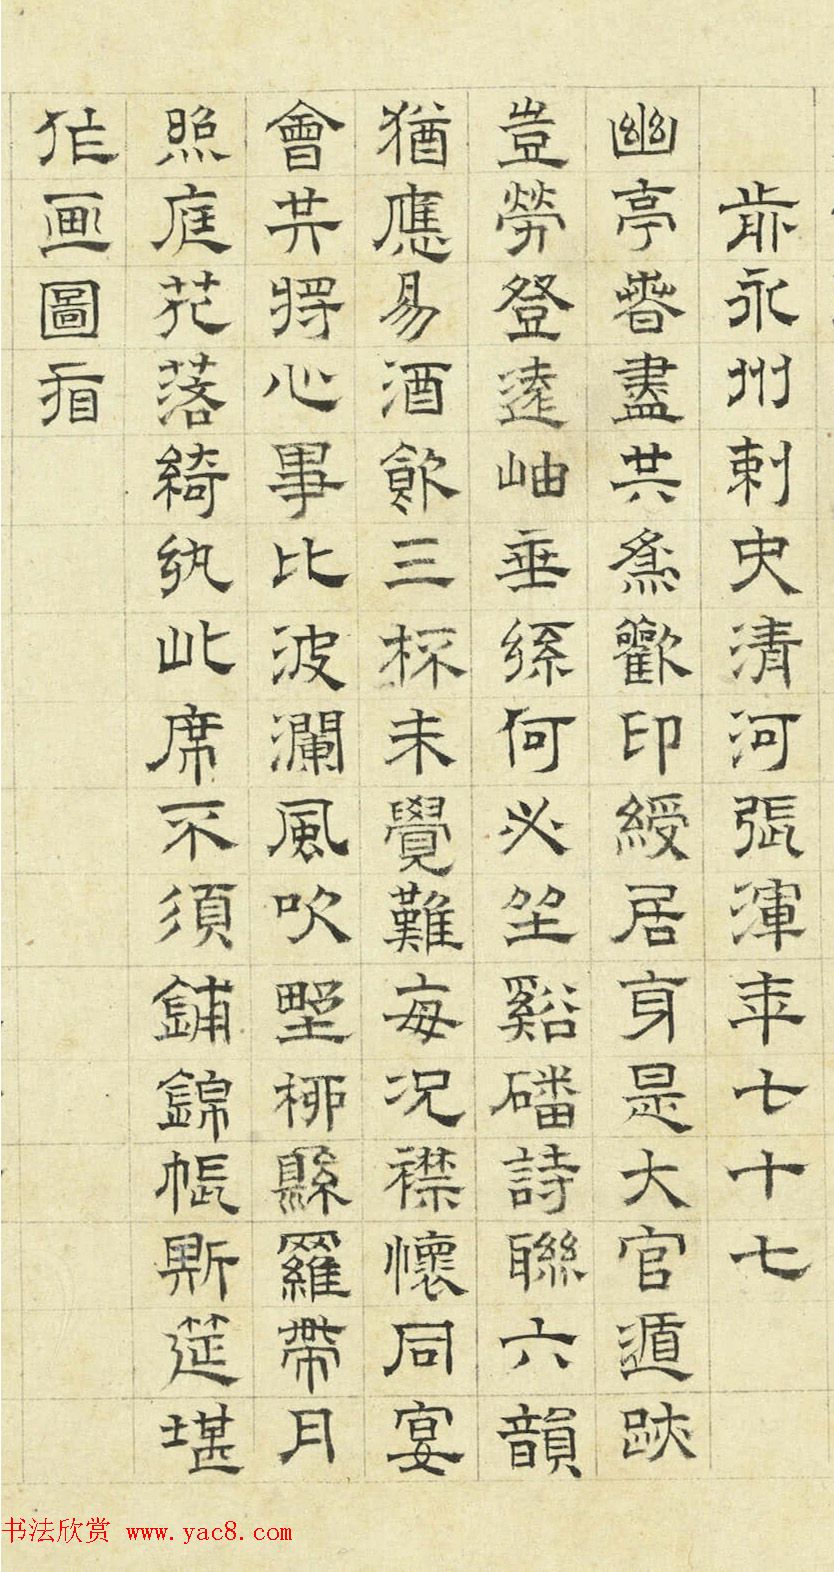 前永州刺史清河張渾年七十七
幽亭春盡共為歡印綬居身是大官遁跡
豈勞登遠岫垂絲何必坐谿磻詩聯六韻
猶應易酒飲三杯未覺難每况襟懷同宴
會共將心事比波瀾風吹墅柳縣羅帶月
照庭花落綺紈此席不須鋪錦帳斯筵堪
作画圖看
书法欣赏 www.yac8.com